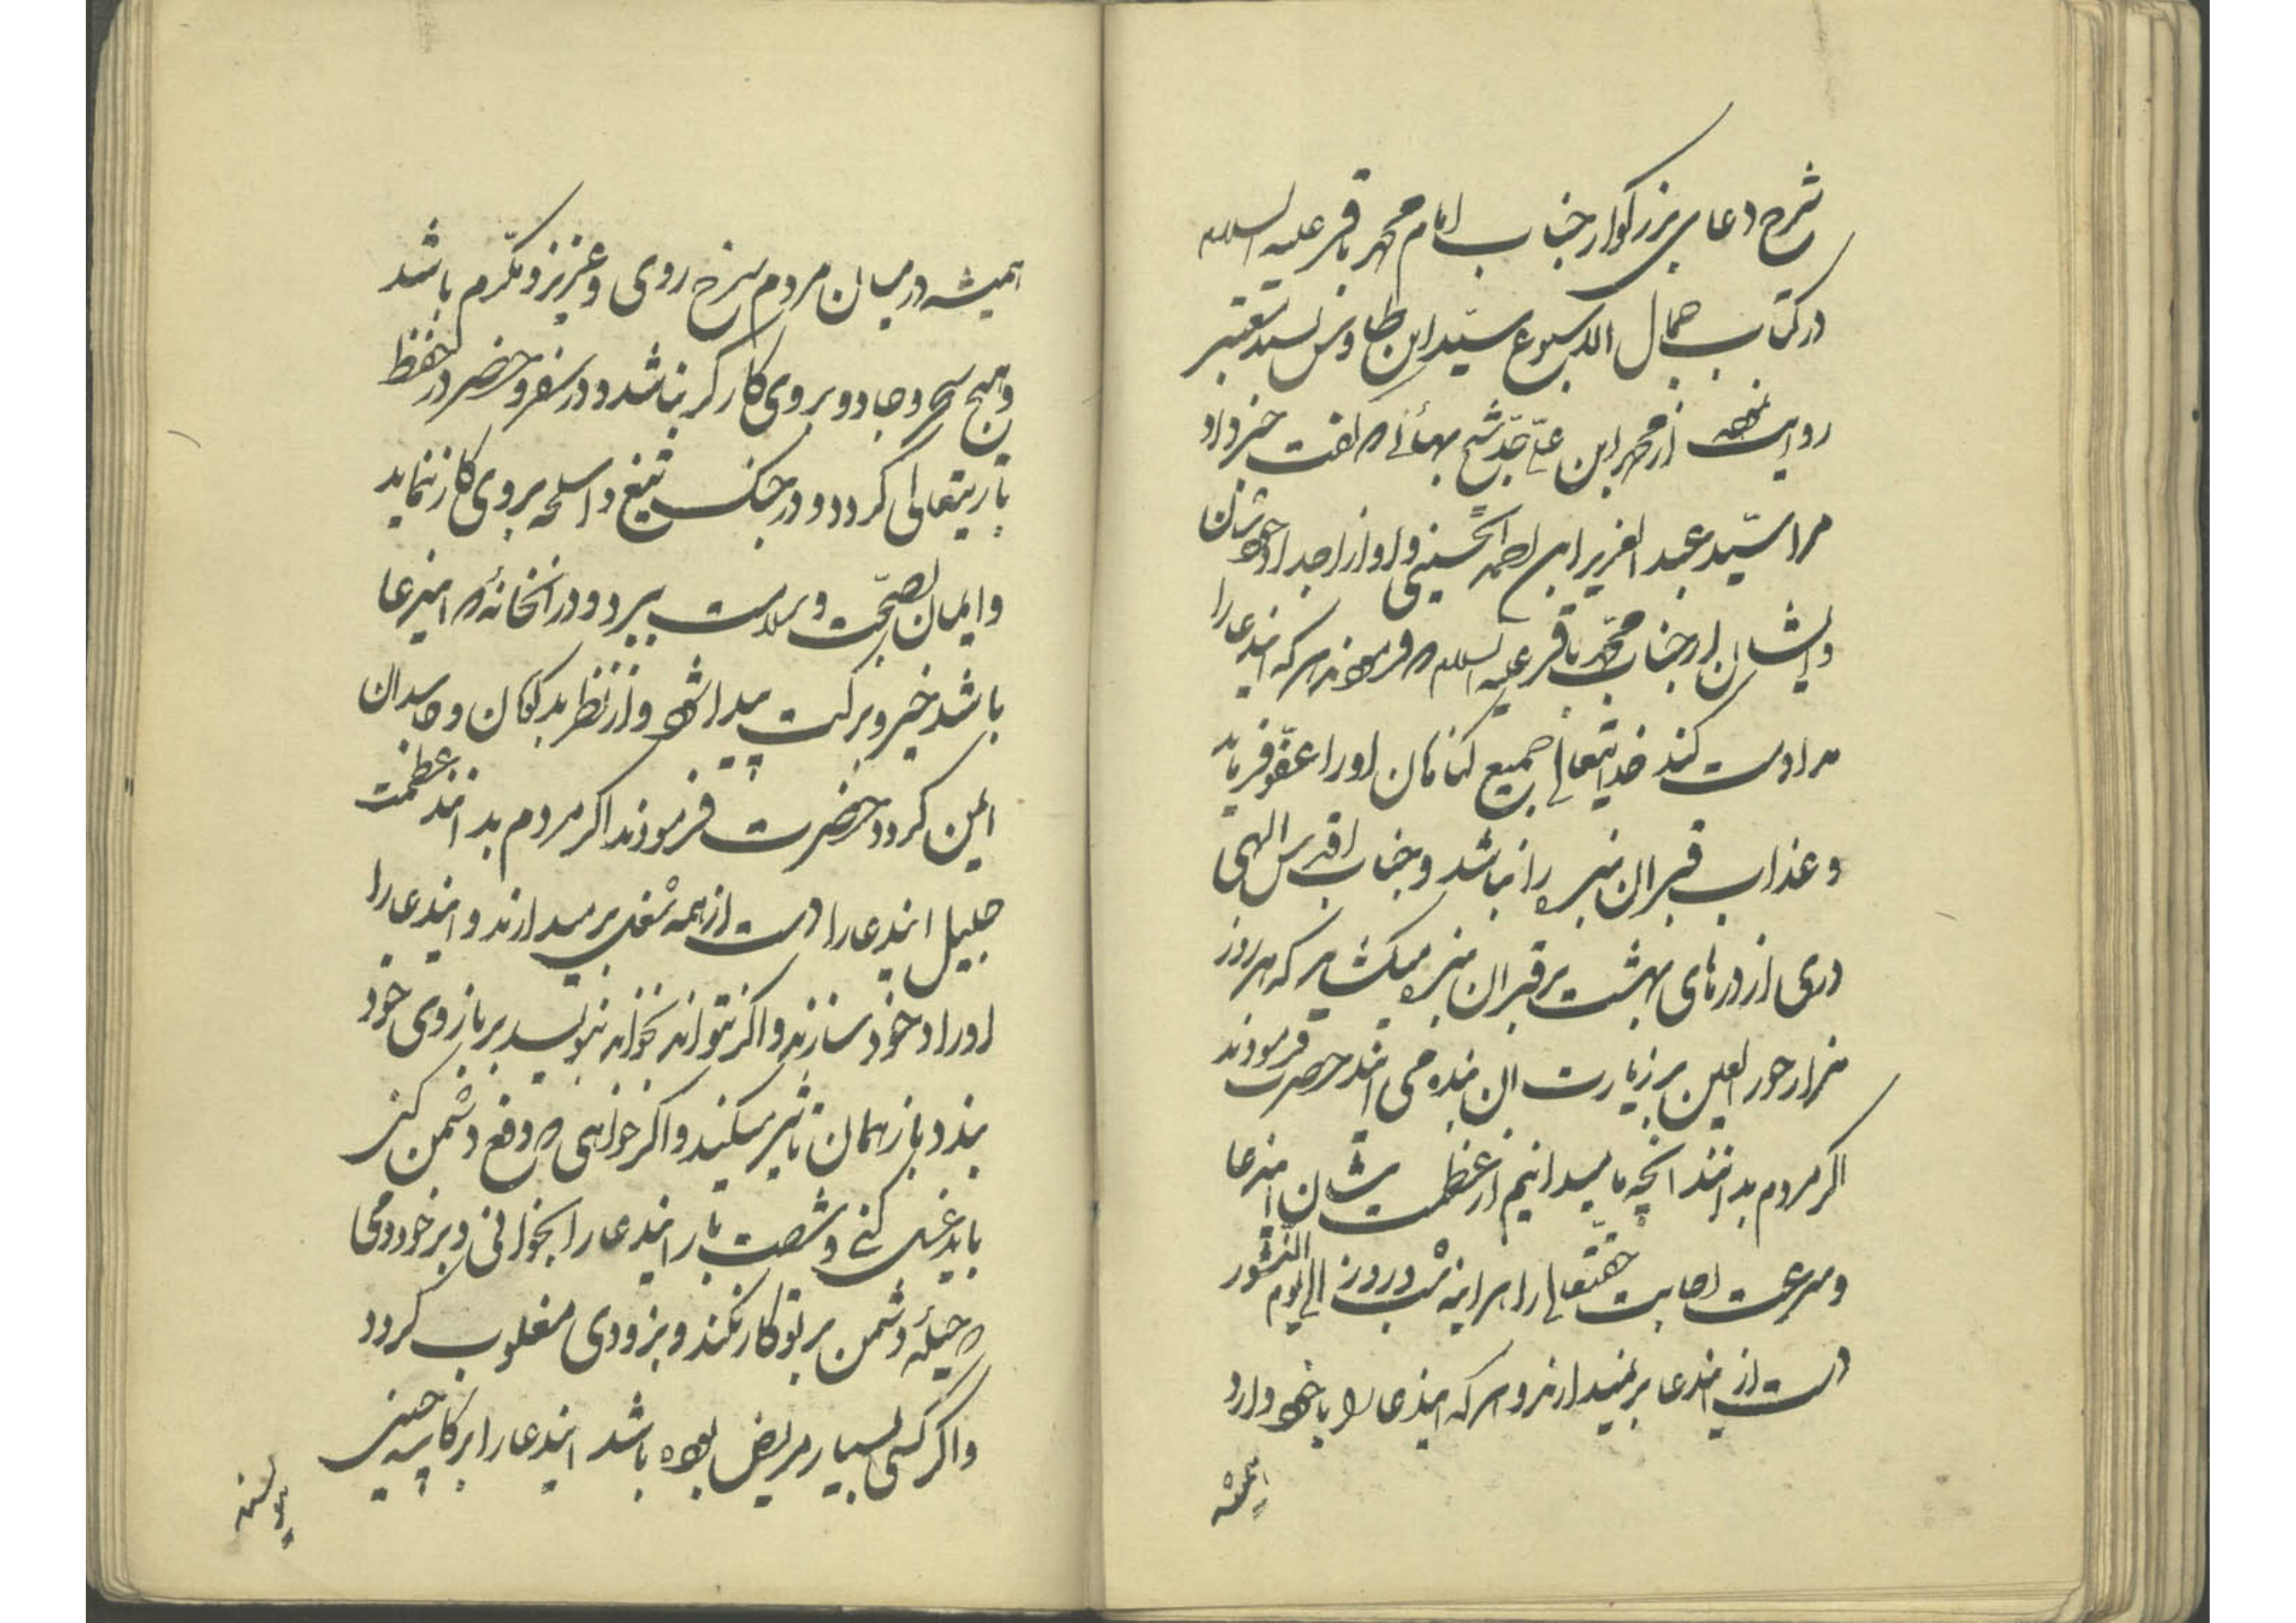 شرح دعای بزرگوار جناب امام محمد باقر علیه السلام
در کتاب جمال الاسبوع سیّد ابن طاوس بسند معتبر
روایت نموده از محمد ابن علی جدّ شیخ بهائی که گفت خبر داد
مرا سیّد عبد العزیز ابن احمد الحسینی و او از اجداد خودشان
و ایشان از جناب محمّد باقر علیه السلام که فرموده‌اند هر که ایندعا را
مداومت کند خدایتعالی جمیع گناهان او را عفو فرماید
و عذاب قبر ان بنده را نباشد و جناب اقدس الهی
دری از درهای بهشت بر قبر ان بنده میکشاید که هر روز
هزار حور العین بر زیارت ان بنده می ایند حضرت فرمودند
اکر مردم بدانند انچه ما میدانیم از عظمت شان ایندعا
و سرعت اجابت حقّتعالی را هراینه شب و روز الی یوم النشور
دست از ایندعا برنمیدارند و هر که ایندعا را با خود دارد
همیشه
همیشه در میان مردم سرخ روی و عزیز و مکرّم باشد
و هیچ سحر و جادو بر وی کارکر نباشد و در سفر و حضر در حفظ
باریتعالی کردد و در جنک تیغ و اسلحه بر وی کار ننماید
و ایمان بصحّت و سلامت ببرد و در انخانهٔ که ایندعا
باشد خیر و برکت پیدا شود و از نظر بدکویان و حاسدان
ایمن کردد حضرت فرمودند اکر مردم بدانند عظمت
جلیل ایندعا را دست از همه شغلی برمیدارند و ایندعا را
اوراد خود سازند و اکر نتواند بخواند بنویسد بر بازوی خود
بندد باز همان تاثیر میکند و اکر خواهی که دفع دشمن کنی
باید غسل کنی و شصت بار ایندعا را بخوانی و بر خود دمی
که حیلهٔ دشمن بر تو کار نکند و بزودی مغلوب کردد
و اکر کسی بسیار مریض بوده باشد ایندعا را بر کاسه چینی
بنویسد